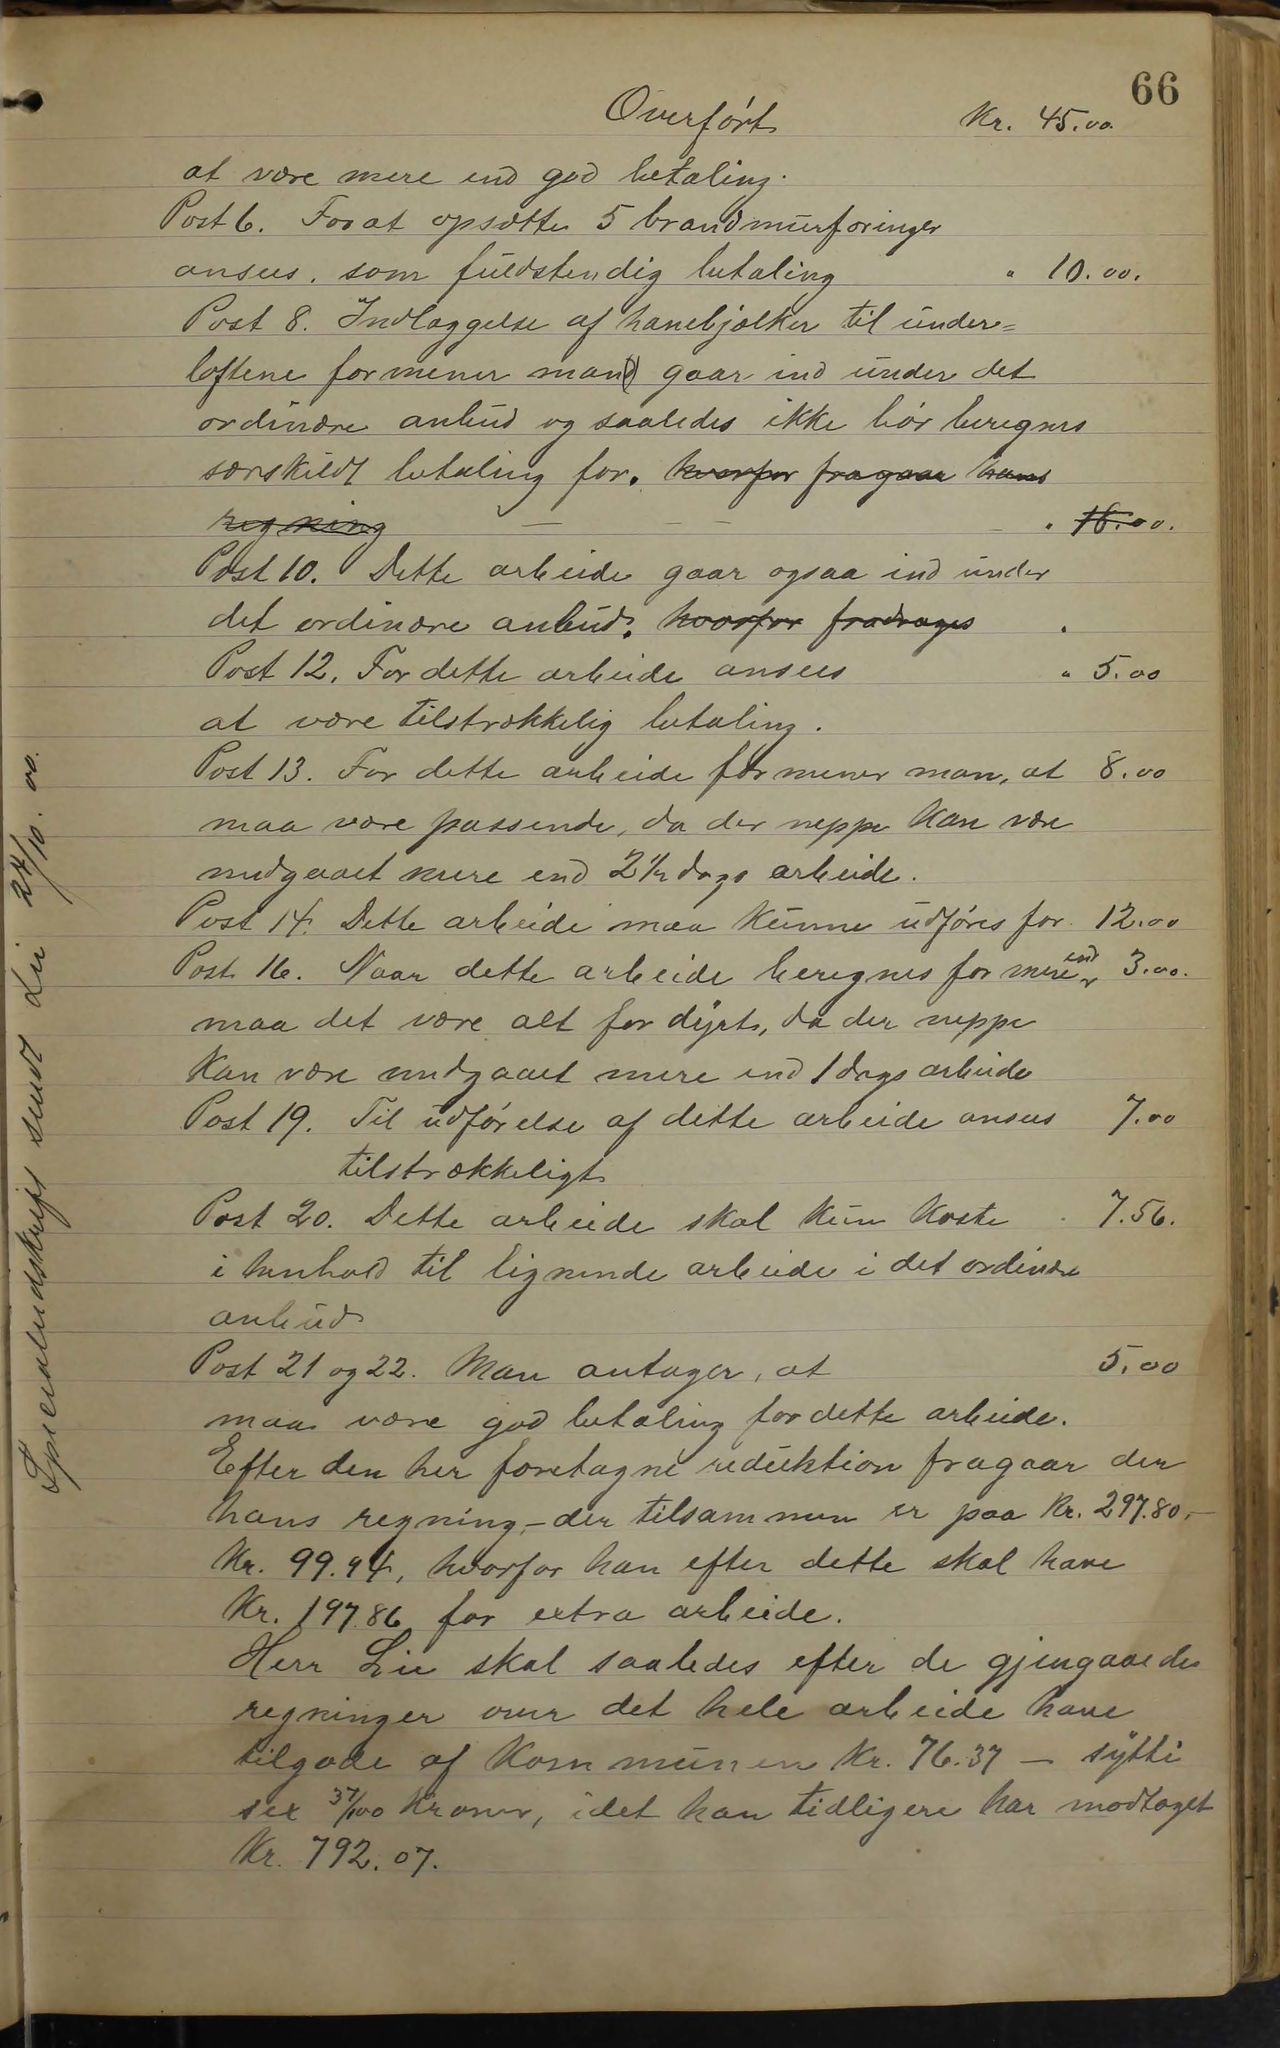 66
Overført Kr. 45.00.
at være mere end god betaling.
Post 6. For at opsætte 5 brandmurforinger
ansees. som fuldstendig betaling " 10.00.
Post 8. Indlæggelse af hanebjælker til under=
loftene formener man gaar ind under det
ordinære anbud og saaledes ikke bør beregnes
særskildt betaling for. hvorfor fragaar hans
regning — — — . 16.00.
Post 10. Dette arbeide gaar ogsaa ind under
det ordinære anbud. hvorfor fradrages .
Post 12. For dette arbeide ansees " 5.00
at være tilstrækkelig betaling.
Post 13. For dette arbeide formener man, at 8.00
maa være passende, da der neppe kan være
medgaaet mere end 2½ dags arbeide.
Post 14. Dette arbeide maa kunne udføres for 12.00
Post 16. Naar dette arbeide beregnes for mere end 3.00.
maa det være alt for dyrt, da der neppe
kan være medgaaet mere end 1 dags arbeide
Post 19. Til udførelse af dette arbeide ansees 7.00
tilstrækkeligt
Post 20. Dette arbeide skal kun koste . 7.56.
i henhold til lignende arbeide i det ordinære
anbud
Post 21 og 22. Man antager, at 5.00
maa være god betaling for dette arbeide.
Efter den her foretagne reduktion fragaar der
hans regning, – der tilsammen er paa Kr. 297.80, –
Kr. 99.94, hvorfor han efter dette skal have
Kr. 197.86 for extra arbeide.
Herr Lie skal saaledes efter de gjengaaede
regninger over det hele arbeide have
tilgode af Kommunen Kr. 76.37 — sytti
sex 37/100 Kroner, idet han tidligere har modtaget
Kr. 792.07.
Specialudskrift sendt Lie 24/10. 00.